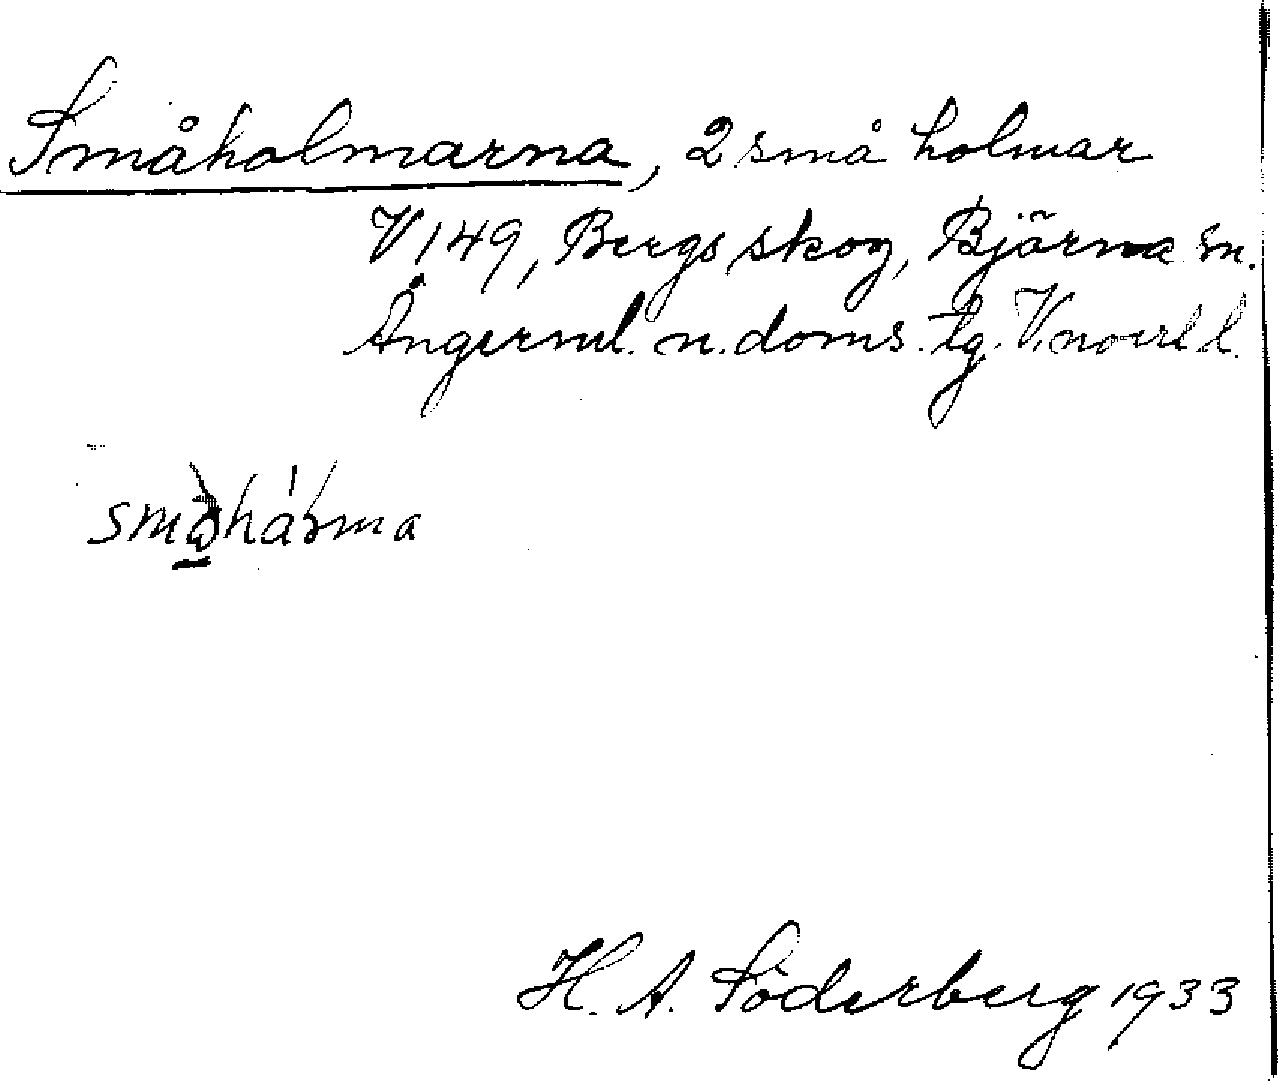 Småholmarna, 2 små holmar
V 149, Bergsskog, Björna sn.
Ångerml. n. doms. tg. V.norrl l.
H. A. Söderberg 1933